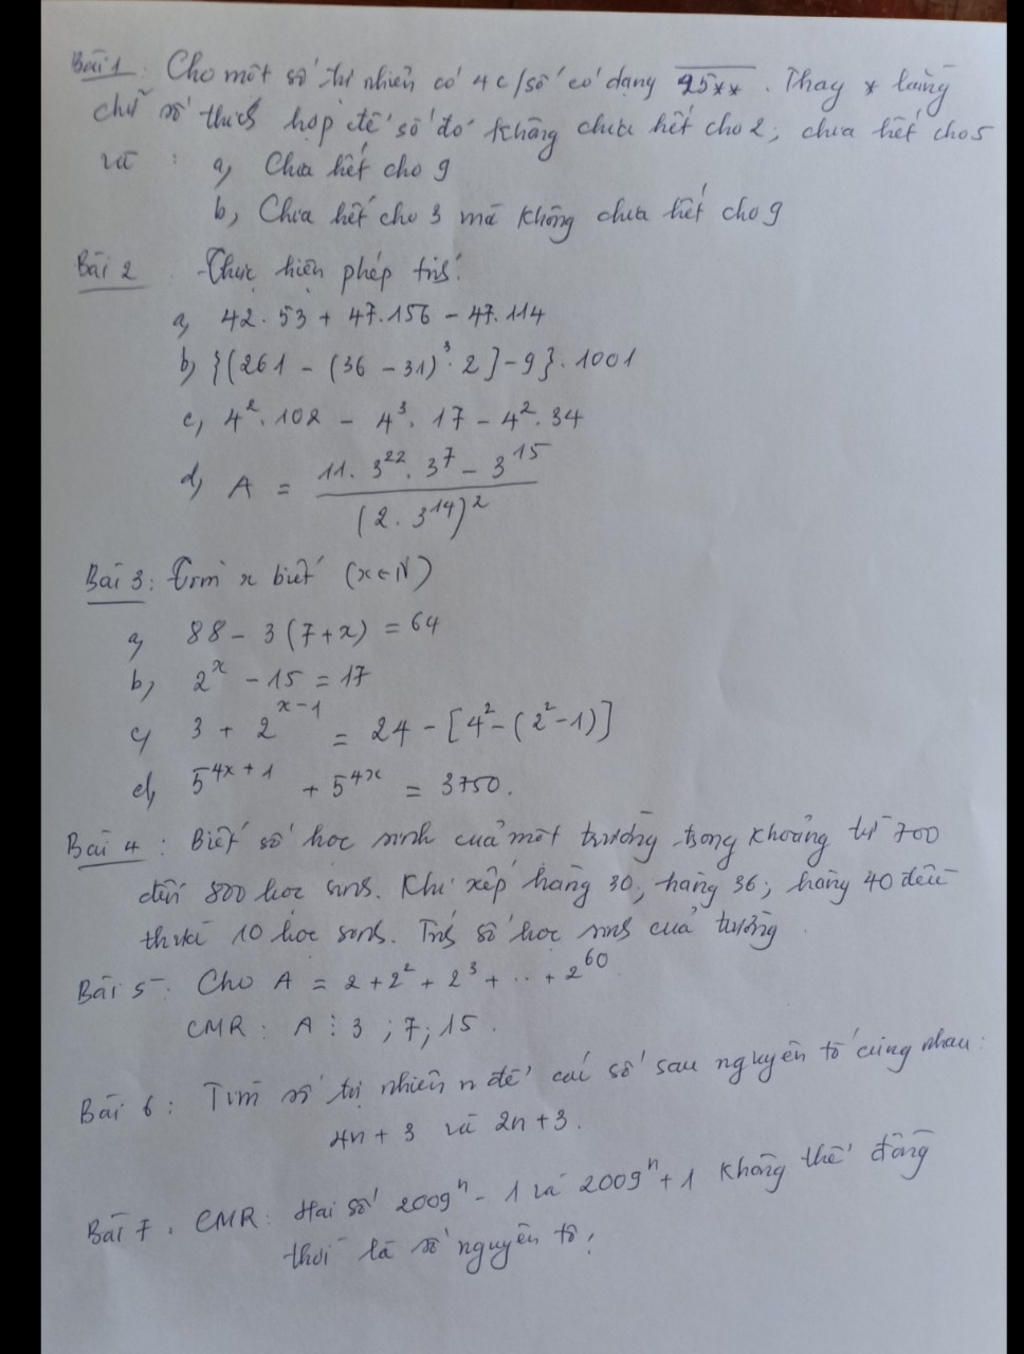 Bài 1. Cho một số tự nhiên có 4 c/số có dạng 95**. Thay * bằng
chữ số thích hợp để số đó không chia hết cho 2; chia hết cho 5
và : a, Chia hết cho 9
b, Chia hết cho 3 mà không chia hết cho 9
Bài 2. Thực hiện phép tính:
a, 42.53 + 47.156 - 47.114
b, {(261 - (36 - 31)³.2] - 9}.1001
c, 4².102 - 4³.17 - 4².34
d, A = (11.3²².3⁷ - 3¹⁵) / (2.3¹⁴)²
Bài 3: Tìm x biết (x∈N)
a, 88 - 3(7+x) = 64
b, 2ˣ - 15 = 17
c, 3 + 2ˣ⁻¹ = 24 - [4² - (2² - 1)]
d, 5⁴ˣ⁺¹ + 5⁴ˣ = 3750.
Bài 4: Biết số học sinh của một trường trong khoảng từ 700
đến 800 học sinh. Khi xếp hàng 30; hàng 36; hàng 40 đều
thừa 10 học sinh. Tính số học sinh của trường
Bài 5. Cho A = 2 + 2² + 2³ + .. + 2⁶⁰
CMR: A ⋮ 3 ; 7; 15.
Bài 6: Tìm số tự nhiên n để các số sau nguyên tố cùng nhau:
4n + 3 và 2n + 3.
Bài 7. CMR: Hai số 2009ⁿ - 1 và 2009ⁿ + 1 không thể đồng
thời là số nguyên tố.